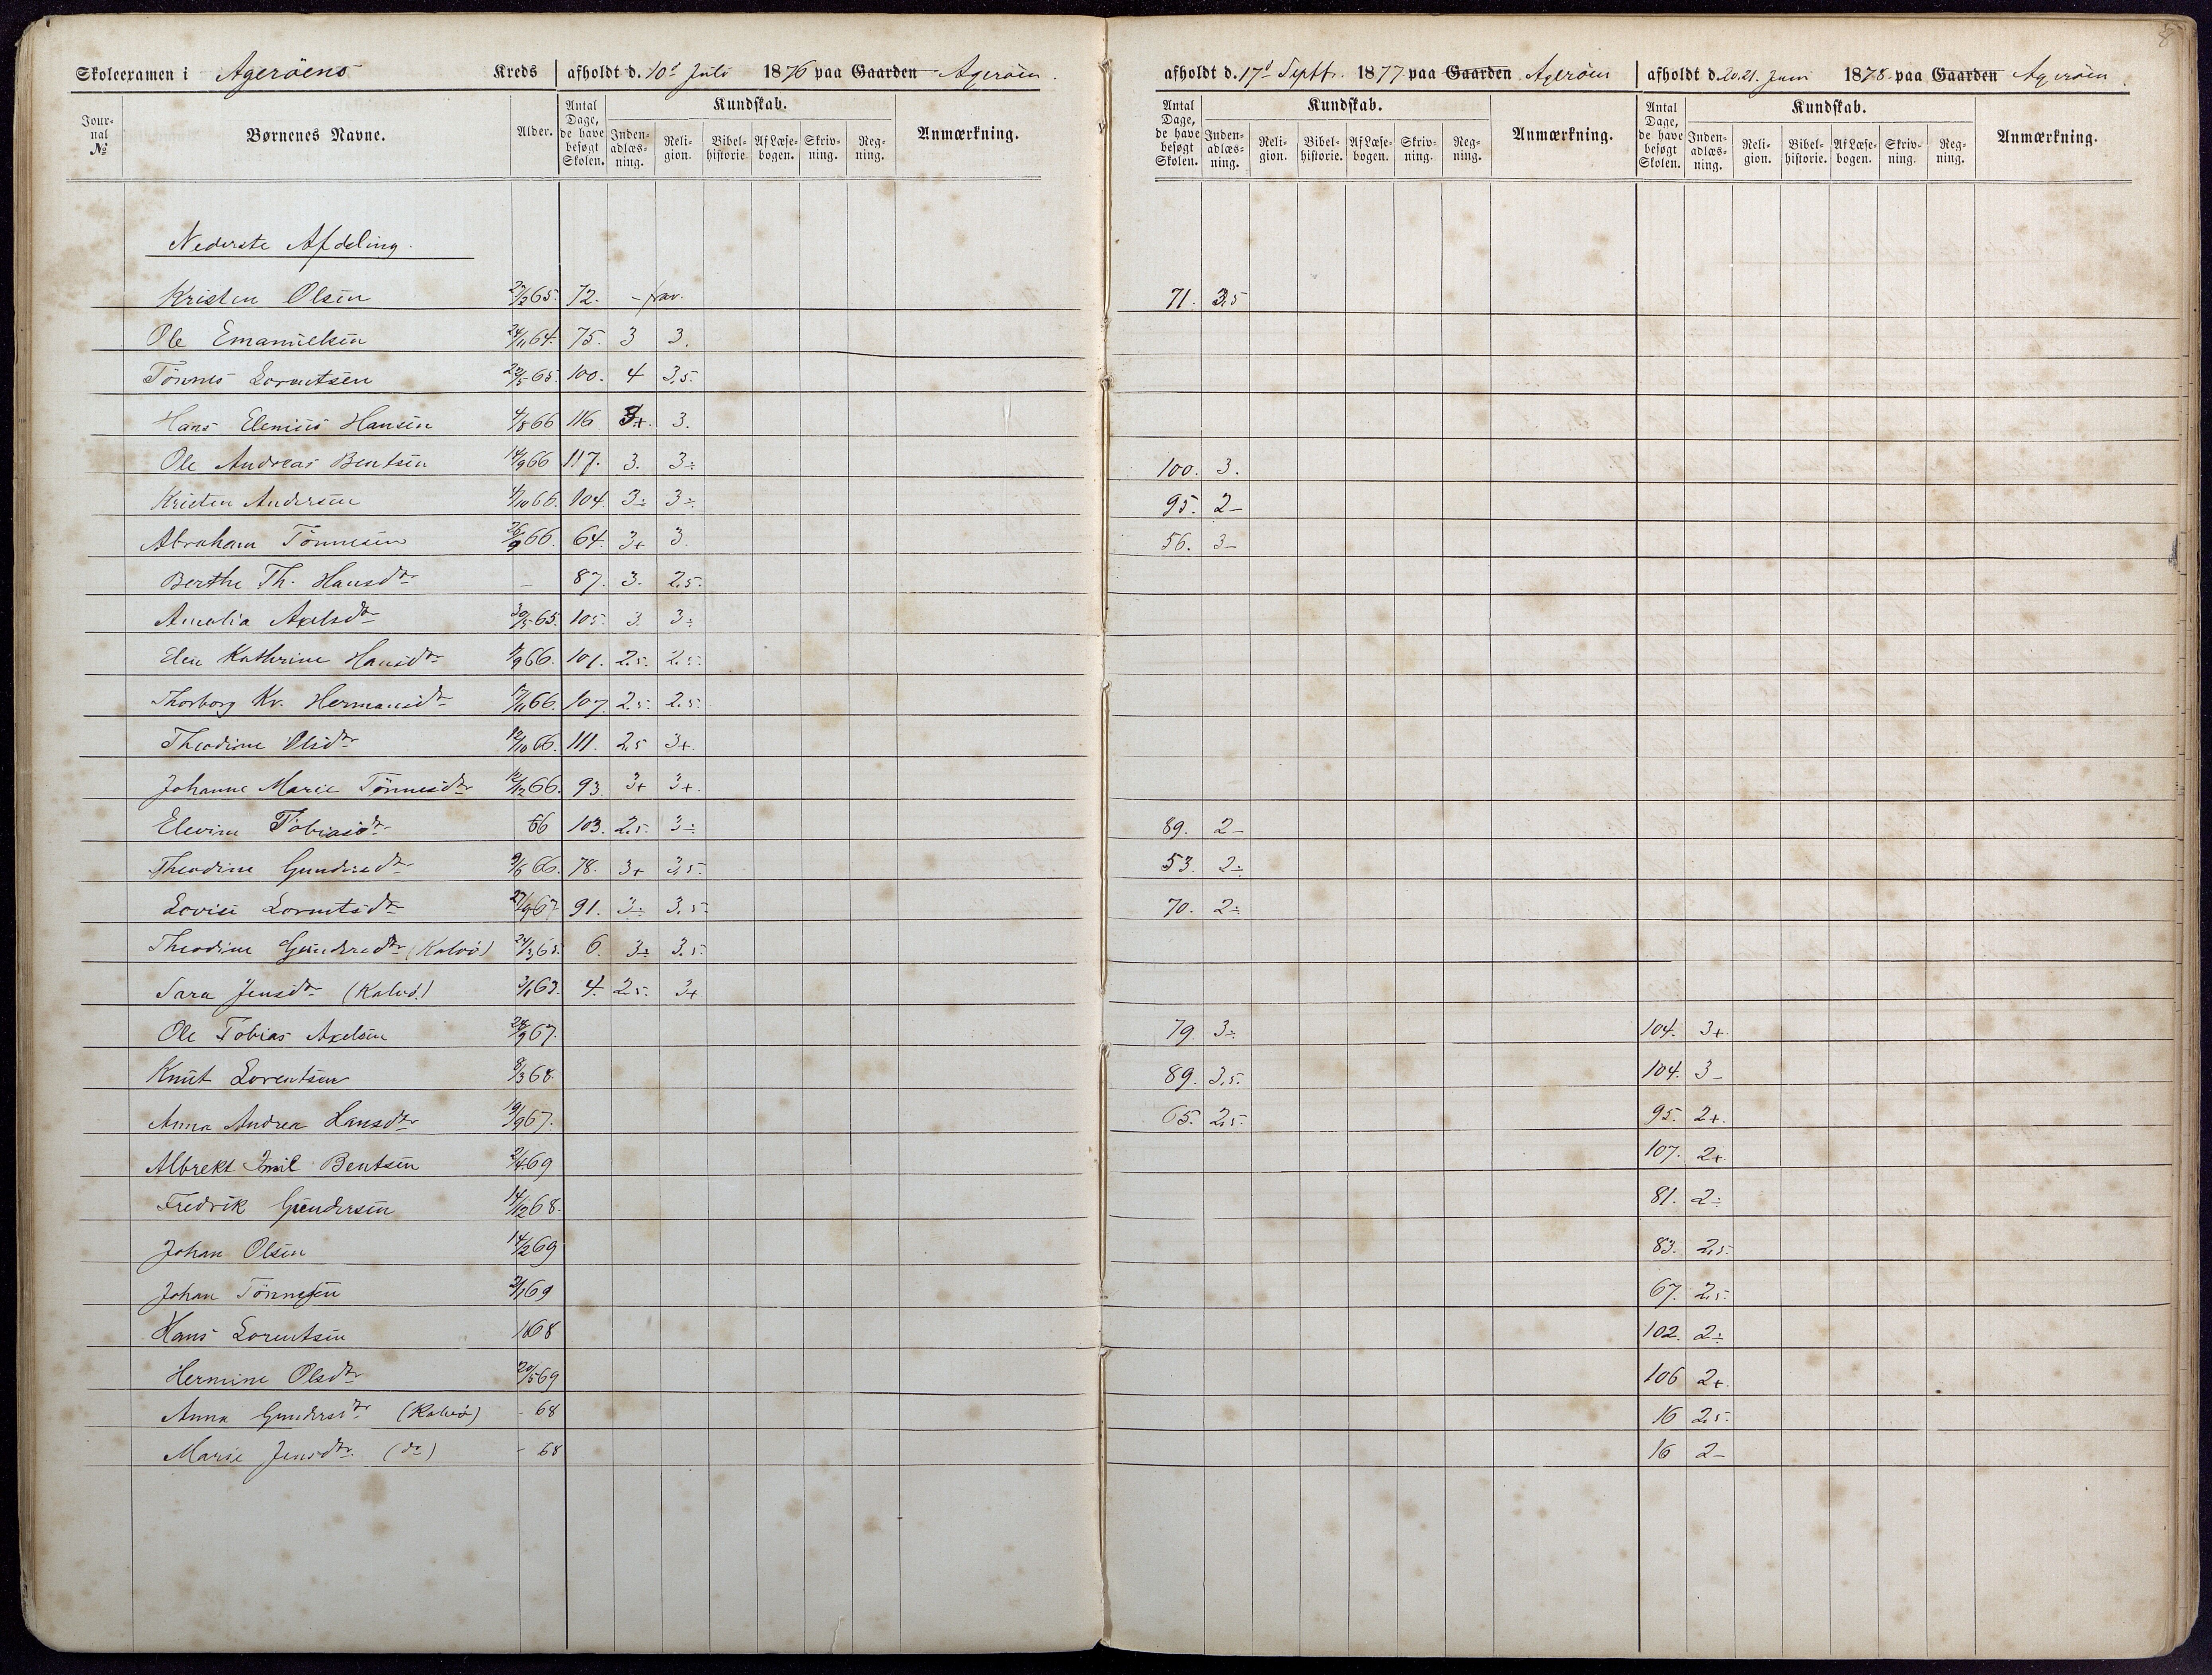 8
Skoleexamen i Agerøens Kreds afholdt d. 10d Juli 1876 paa Gaarden Agerøen. afholdt d. 17d Septb. 1877 paa Gaarden Agerøen afholdt d. 20. 21. Juni 1878 paa Gaarden Agerøen.
Jour-nal № Børnenes Navne. Alder. Antal Dage, de have besøgt Skolen. Kundskab. Inden-adlæs-ning. Reli-gion. Bibel-historie Af Læse-bogen. Skriv-ning. Reg-ning. Anmærkning. Antal Dage, de have besøgt Skolen. Kundskab. Inden-adlæs-ning. Reli-gion. Bibel-historie. Af Læse-bogen. Skriv-ning. Reg-ning. Anmærkning. Antal Dage, de have besøgt Skolen. Kundskab. Inden-adlæs-ning. Reli-gion. Bibel-historie. Af Læse-bogen. Skriv-ning. Reg-ning. Anmærkning.
Nederste Afdeling.
Kristen Olsen 65. 72. - frav. 71. 3,5
Ole Emanuelsen 24/11 64. 75. 3 3.
Tönnes Lorentsen 65. 100. 4 3,5.
Hans Elenius Hansen 4/8 66 116 3+. 3.
Ole Andreas Bentsen 14/9 66 117. 3. 3÷ 100. 3.
Kristen Andersen 4/10 66. 104. 3÷ 3÷. 95. 2-
Abraham Tönnesen 26/9 66. 64. 3+ 3. 56. 3-
Berthe Th. Hansdtr - 87. 3. 2,5.
Amalia Axelsdtr 30/5 65. 105. 3. 3÷
Elen Kathrine Hansdtr 66. 101. 2,5. 2,5.
Thorborg Kr. Hermansdtr 17/11 66. 107. 2,5. 2,5.
Theodine Olsdtr 12/10 66. 111. 2,5 3+.
Johanne Marie Tönnesdtr 66. 93. 3+ 3+.
Elevine Tobiasdtr 66 103. 2,5. 3÷ 89. 2-
Theodine Gundersdtr 9/6 66. 78. 3+ 3,5. 53. 2÷
Lovise Lorentsdtr 27/9 67 91. 3÷ 3,5. 70. 2÷
Theodine Gundersdtr (Kalvö) 24/3 65. 6. 3÷ 3,5.
Sara Jensdtr (Kalvö.) 3/1 63. 4. 2,5. 3+
Ole Tobias Axelsen 28/9 67. 79. 3÷ 104. 3+.
Knut Lorentsen 8/3 68. 89. 3,5. 104. 3-
Anna Andrea Hansdtr 19/9 67. 65. 2,5. 95. 2+.
Albrekt Emil Bentsen 2/4 69 107. 2+
Fredrik Gundersen 14/12 68. 81. 2÷
Johan Olsen 14/2 69 83. 2,5.
Johan Tönnesen 2/1 69 67. 2,5.
Hans Lorentsen 68 102. 2÷
Hermine Olsdtr 20/5 69 106 2+.
Anna Gundersdtr (Kalvö) - 68 16 2,5.
Marie Jensdtr. (do) - 68 16 2-